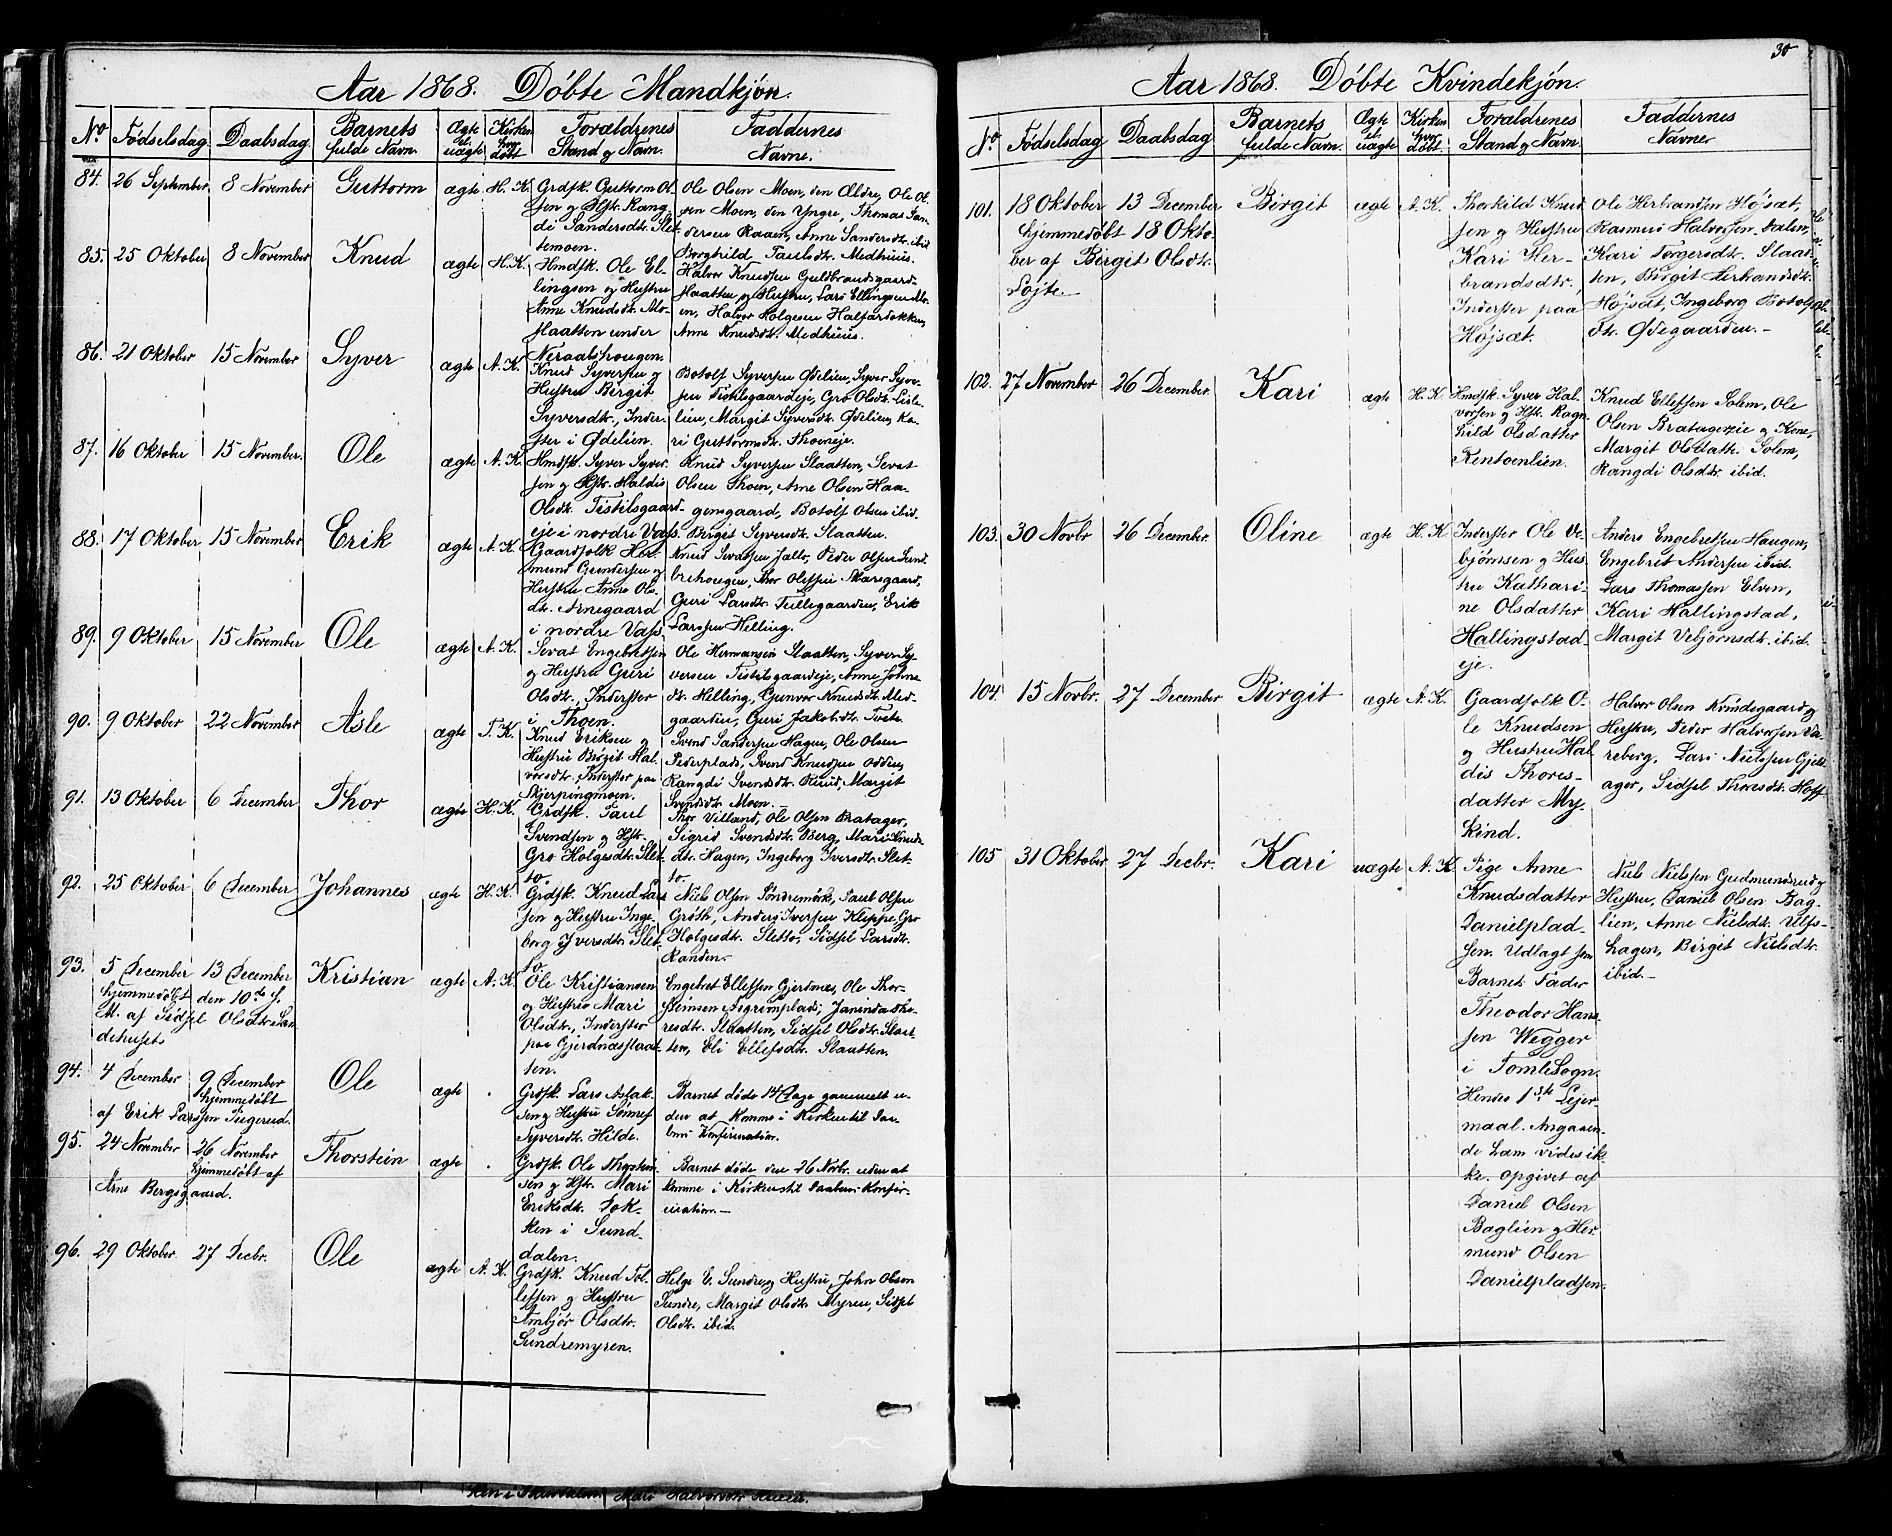 Aar 1868. Döbte Mandkjön.
No Födselsdag Daabsdag Barnets fulde Navn. Ægte el. uægte Kirken hvor döbt Forældrenes Stand og Navn. Faddernes Navne.
84. 26 September 8 November Guttorm ægte H. K.
Grdfk. Guttorm Ol-
sen og Hstr. Rang-
di Sandersdtr. Slet-
temoen.
Ole Olsen Moen, den Ældre, Ole Ol-
sen Moen, den Yngre, Thomas San-
dersen Raaen, Anne Sandersdtr. ibid
Borghild Paulsdtr. Medhuus.
85. 25 Oktober 8 November Knud ægte H. K.
Hmdfk. Ole El-
lingsen og Hustru
Anne Knudsdtr.
Haatten under
Neraalshougen.
Halvor Knudsen Guldbrandsgaard-
Haatten og Hustru, Lars Ellingsen
en, Halvor Holgesen Halfardokken,
Anne Knudsdtr. Medhuus.
86. 21 Oktober 15 November Syver ægte A. K.
Knud Syversen og
Hustru Birgit
Syversdtr., Inder-
ster i Ødelien.
Botolf Syversen Ødelien, Syver Syver-
sen Tistilsgaardeje, Gro Olsdtr. Lisle-
lien, Margit Syversdtr. Ødelien, Ka-
ri Guttormsdtr. Thoeneje.
87. 16 Oktober 15 November. Ole ægte A. K.
Hmdfk. Syver Syver-
sen og Hstr. Haldis
Olsdtr. Tistilsgaard-
eje i nordre Vats.
Knud Syversen Slaatten, Sevat
Olsen Thoen, Arne Olsen Haa-
gensgaard, Botolf Olsen ibid
Birgit Syversdtr. Slaatten.
88. 17 Oktober 15 November Erik ægte A. K.
Gaardfolk Her-
mund Gundersen og
Hustru Anne Ols-
dtr. Arnegaard
i nordre Vats.
Knud Sevatsen Jallo, Peder Olsen Sund-
brehougen, Thor Olessen Skarsgaard,
Guri Larsdtr. Tullegaarden, Erik
Larssen Helling.
89. 9 Oktober 15 November Ole ægte A. K.
Sevat Engebretsen
og Hustru Guri
Olsdtr. Inderster
i Thoen.
Ole Hermansen Slaatten, Syver Sy-
versen Tistilsgaardeje, Anne Johns-
dtr. Helling, Gunvor Knudsdtr. Med-
gaarden, Guri Jakobsdtr. Tveto.
90. 9 Oktober 22 November Asle ægte T. K.
Knud Eriksen og
Hustru Birgit Hal-
vorsdtr. Inderster paa
Skjerpingmoen.
Svend Sandersen Hagen, Ole Olsen
Pedersplads, Svend Knudsen Odden,
Rangdi Svendsdtr. Ruud, Margit
Svendsdtr. Moen.
91. 13 Oktober 6 December Thor ægte H. K.
Grdfk. Paul
Svendsen og Hstr.
Gro Holgesdtr. Slet-
to.
Thor Villand, Ole Olsen Bratager,
Sigrid Svendsdtr. Berg, Mari Knuds-
dtr. Hagen, Ingeborg Iversdtr. Slet-
to.
92. 25 Oktober 6 December Johannes ægte H. K.
Grdfk. Knud Lars-
sen og Hustru Inge-
borg Iversdtr. Slet-
to.
Niels Olsen Söndremörk, Paul Olsen
Gröth, Anders Iversen Kleppe, Gro
Holgesdtr. Sletto, Sidsel Larsdtr.
Randen.
93. 5 December 13 December Kristian ægte A. K.
hjemmedöbt den 10de s.
M. af Sidsel Olsdtr. San-
dehuset.
Ole Kristiansen
og Hustru Mari
Olsdtr., Inderster
paa Gjerdnæsslaat-
ten.
Engebret Ellefsen Gjerdnæs, Ole Thor-
stensen Asgrimsplads, Janinda Tho-
resdtr. Slaatten, Sidsel Olsdtr. Slaat-
ten, Eli Ellefsdtr. Slaatten.
94. 4 December 9 December Ole ægte .
hjemmedöbt
af Erik Larssen Tugerud.
Grdfk. Lars Aslak-
sen og Hustru Sönnef
Syversdtr. Hilde.
Barnet döde 14 Dage gammelt u-
den at komme i Kirken til Daa-
bens Konfirmation.
95. 24 November 26 November Thorstein ægte .
hjemmedöbt af
Arne Bergsgaard.
Grdfk. Ole Thorstein-
sen og Hstr. Mari
Eriksdtr. Dok-
ken i Sund-
dalen.
Barnet döde den 26 Novbr. uden at
komme i Kirken til Daabens Konfir-
mation. –
96. 29 Oktober. 27 Decbr. Ole ægte A. K.
Grdfk. Knud Tol-
lefsen og Hustru
Ambjör Olsdtr.
Sundremyren.
Helge E. Sundre og Hustru, John Olsen
Sundre, Margit Olsdtr. Myren, Sidsel
Olsdtr. ibid.
30
Aar 1868. Döbte Kvindekjön.
No Födselsdag Daabsdag Barnets fulde Navn. Ægte el. uægte Kirken hvor döbt. Forældrenes Stand og Navn Faddernes Navne
101. 18 Oktober 13 December Birgit ægte A. K.
hjemmedöbt 18 Okto-
ber af Bergit Olsdtr.
Löjte.
Thorkild Knud-
sen og Hustru
Kari Her-
brandsdtr.,
Inderster paa
Höjsæt.
Ole Herbrandsen Höjsæt,
Rasmus Halvorsen Dalen,
Kari Torgersdtr. Slaat-
ten, Birgit Herbrandsdtr.
Höjsæt, Ingeborg Botolfs-
dtr. Ødegaarden. –
102. 27 November 26 December. Kari ægte H. K.
Hmdfk. Syver Hal-
vorsen og Hstr. Ragn-
hild Olsdatter
Rentoenlien.
Knud Ellefsen Solem, Ole
Olsen Bratagereie og Kone,
Margit Olsdatter Solem,
Rangdi Olsdtr. ibid.
103. 30 Novbr 26 December. Oline ægte H. K.
Inderster Ole Ve-
björnsen og Hus-
tru Kathari-
ne Olsdatter
Hallingstad-
eje.
Anders Engebretsen Haugen,
Engebret Andersen ibid.
Lars Thomassen Elven,
Kari Hallingstad,
Margit Vebjörnsdtr. ibid.
104. 15 Novbr. 27 December Birgit ægte A. K.
Gaardfolk O-
le Knudsen
og Hustru Hal-
dis Thores-
datter My-
kind.
Halvor Olsen Kvindegaard og
Hustru, Peder Halvorsen Va-
reberg, Lars Nielssen Gjeld-
ager, Sidsel Thoresdtr. Hoff.
105 31 Oktober 27 Decbr. Kari uægte A. K.
Pige Anne
Knudsdatter
Danielplad-
sen. Udlagt som
Barnets Fader
Theodor Han-
sen Wegger
i Tomlesogn.
Hendes 1ste Lejer-
maal. Angaaen-
de Ham vides ik-
ke. opgivet af
Daniel Olsen
Baglien og Her-
mund Olsen
Danielpladsen.
Niels Nielssen Gudmundsrud og
Hustru, Daniel Olsen Bag-
lien, Anne Nielsdtr. Ulfs-
hagen, Birgit Nielsdtr.
ibid. –
Mari Halvorsdtr.